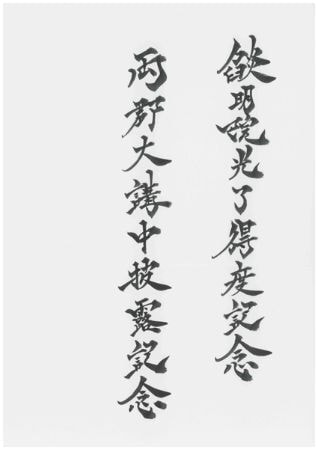 燄明院光了得度記念
両郡大講中披露記念